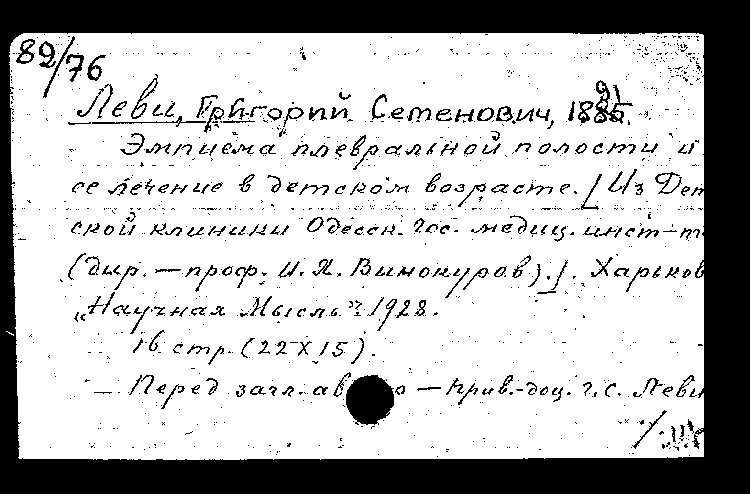 89/76
Леви, Григорий Семенович, 1885. 91
Эмпиема плевральной полости и
ее лечение в детском возрасте. [Из Дет
ской клиники Одесск. гос. медиц. инст-т
(дир. — проф. И. Я. Винокуров).]. Харьков
„Научная Мысль“ 1928.
16 стр. (22X15).
— Перед загл. ав о — прив.-доц. Г. С. Леви